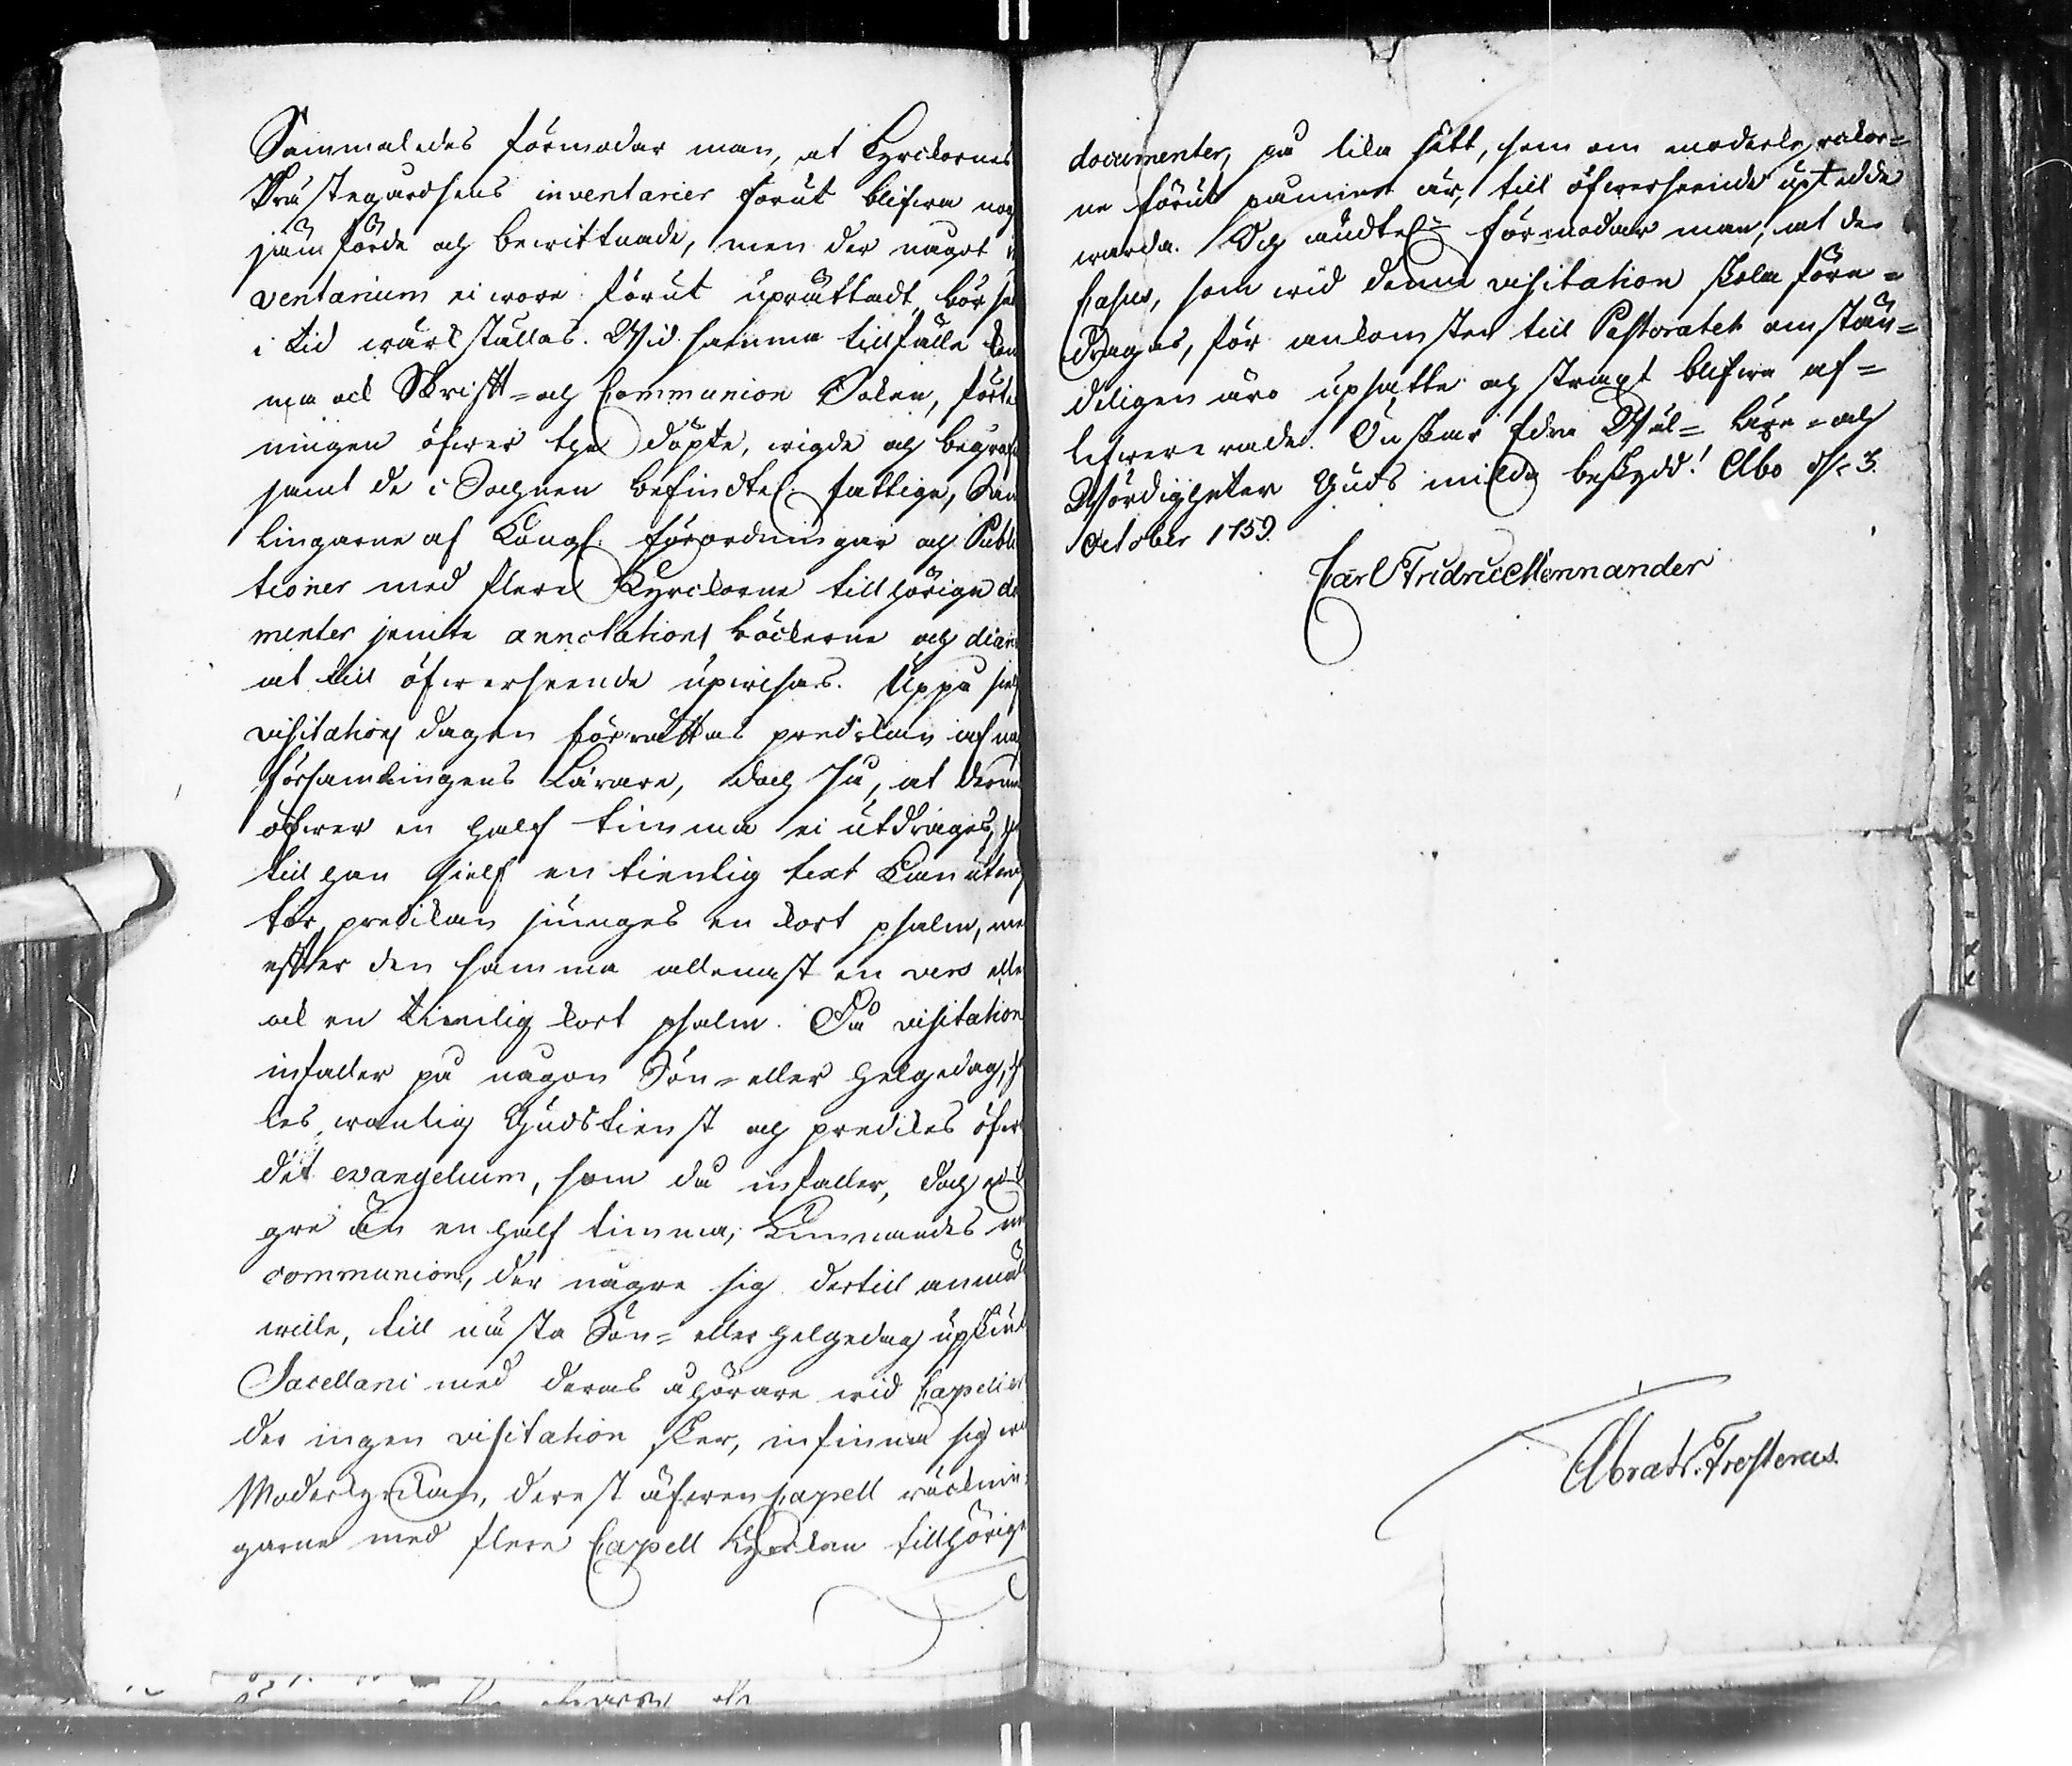 Sammaledes förmodar man, at Kyrckornes
Prästegårdsens inventarier förut blifwa nog
jämförde och bewittnade, men der något in
ventarium ei wore förut uprättadt, bör så
i tid wärkställas. Wid samma tillfälle kom
ma ock Skrifft- och Communion Boken, förte
ningen öfwer the döpte, wigde och begrafn
samt de i Sochnen befindtel. fattige, Sam
lingarne af Kongl. förordningar och Publi
tioner med flere Kyrckorne tillhörige do
menter jemte annotations böckerne och diari
at till öfwerseende upwisas. Uppå sielf
visitations dagen förrättas predikan af nå
församlingens Lärare, doch så, at derme
öfwer en half timma ei utdrages,
till han sielf en tienlig text kan utwä
för predikan siunges en kort psalm, me
effter den samma allenast en vers elle
ock en tienlig kort psalm. Då visitation
infaller på någon Sön- eller helgedag,
les wanlig Gudstienst och predikes öfwer
det evangelium, som då infaller, doch ei
gre än en half timma, kunnandes
communion, der någre sig dertill anmäl
wille, till nästa Sön- eller helgedag upskiut
Sacellani med deras åhörare wid Capellet
der ingen visitation sker, infinna sig wid
Moderkyrckan, derest äfwen Capell räcknin-
garne med flere Capell Kyrckan tillhörige
documenter, på lika sätt, som om moderkyrckor-
ne förut påmint är, till öfwerseende uptedde
warda. Och ändtel. förmodar man, at de
Casus, som wid denna visitation skola före-
dragas, för ankomsten till Pastoratet omstän-
deligen äro upsatte och straxt blifwa af-
lefwererade. Önskar Edra Wäl- Läre- och
Wördigheter Guds milda beskydd! Åbo d. 3.
October 1759.
Carl Fridric Mennander
Abrah. Frosterus.